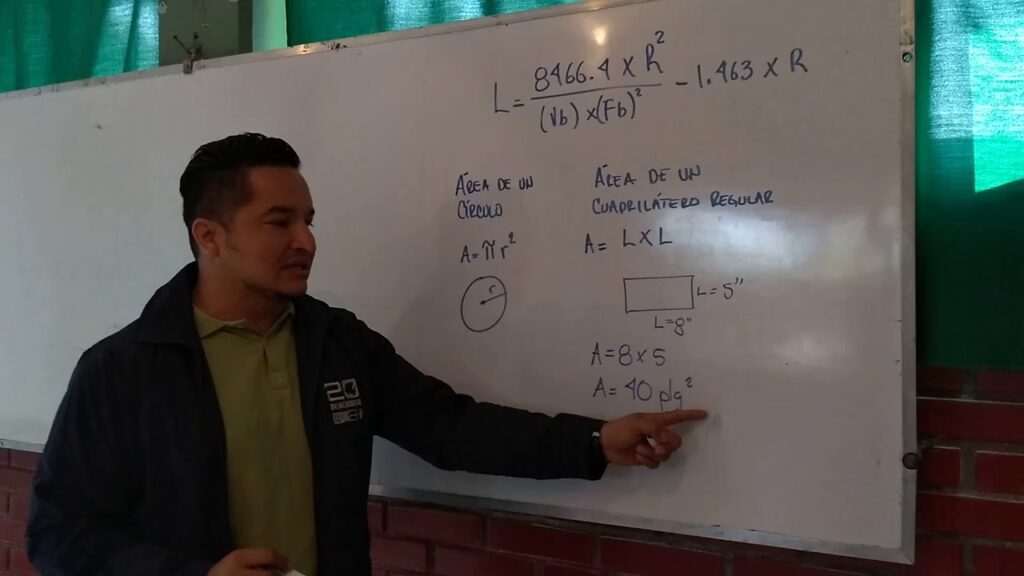 L = 8466.4 x R² / (Vb) x (Fb)² - 1.463 x R
ÁREA DE UN
CÍRCULO
A = πr²
r
ÁREA DE UN
CUADRILÁTERO REGULAR
A = L X L
L = 5"
L = 8"
A = 8 x 5
A = 40 plg²
20